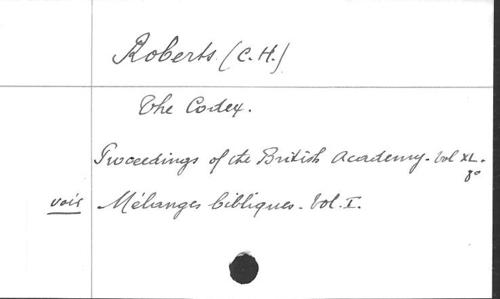 Roberts (C.H.)
The Codex.
Proceedings of the British Academy. Vol XL.
8°
voir Mélanges bibliques. Vol. I.